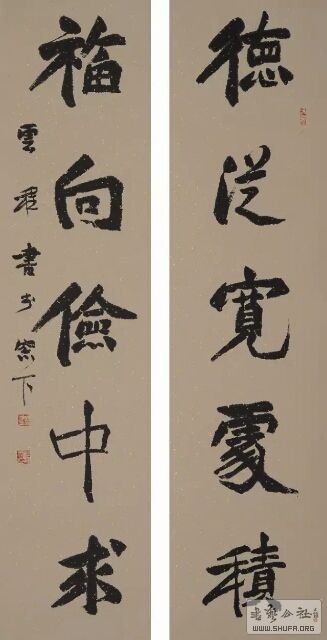 德從寬處積
福向儉中求
雲書於
書藝公社
WWW.SHUFA.ORG